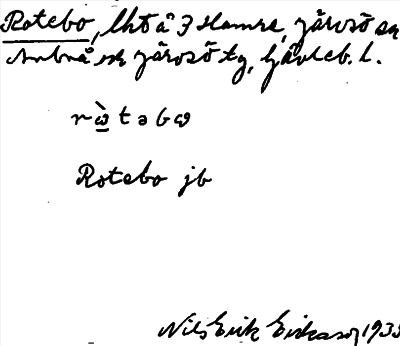 Rotebo, lht å 3 Hamre, Järvsö sn
Arbrå och Järvsö tg, Gävleb. l.
rὼtəbω
Rotebo jb
Nils Erik Eriksson 1933